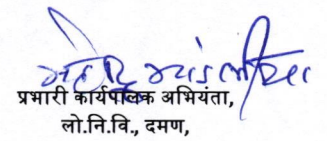 प्रभारी कार्यपालक अभियंता,
लो.नि.वि., दमण,